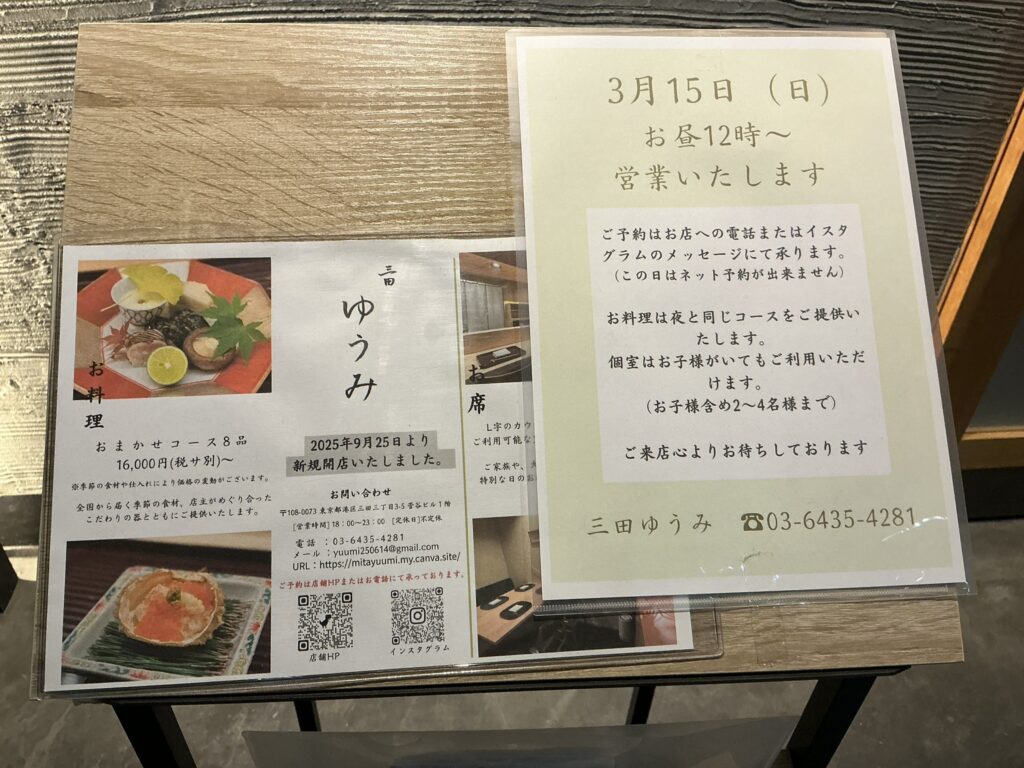 3月15日（日）
お昼12時～
営業いたします
ご予約はお店への電話またはイスタ
グラムのメッセージにて承ります。
（この日はネット予約が出来ません）
お料理は夜と同じコースをご提供い
たします。
個室はお子様がいてもご利用いただ
けます。
（お子様含め2～4名様まで）
ご来店心よりお待ちしております
三田ゆうみ ☎03-6435-4281
お料理
おまかせコース８品
16,000円(税サ別)～
※季節の食材や仕入れにより価格の変動がございます。
全国から届く季節の食材、店主がめぐり合った
こだわりの器とともにご提供いたします。
三田
ゆうみ
2025年9月25日より
新規開店いたしました。
お問い合わせ
〒108-0073 東京都港区三田三丁目3-5 菅谷ビル１階
[営業時間] 18：00～23：00 [定休日]不定休
電話 ：03-6435-4281
メール：yuumi250614@gmail.com
URL：https://mitayuumi.my.canva.site/
ご予約は店舗HPまたはお電話にて承っております。
店舗HP
インスタグラム
お席
L字のカウ
ご利用可能な
ご家族や、
特別な日のお